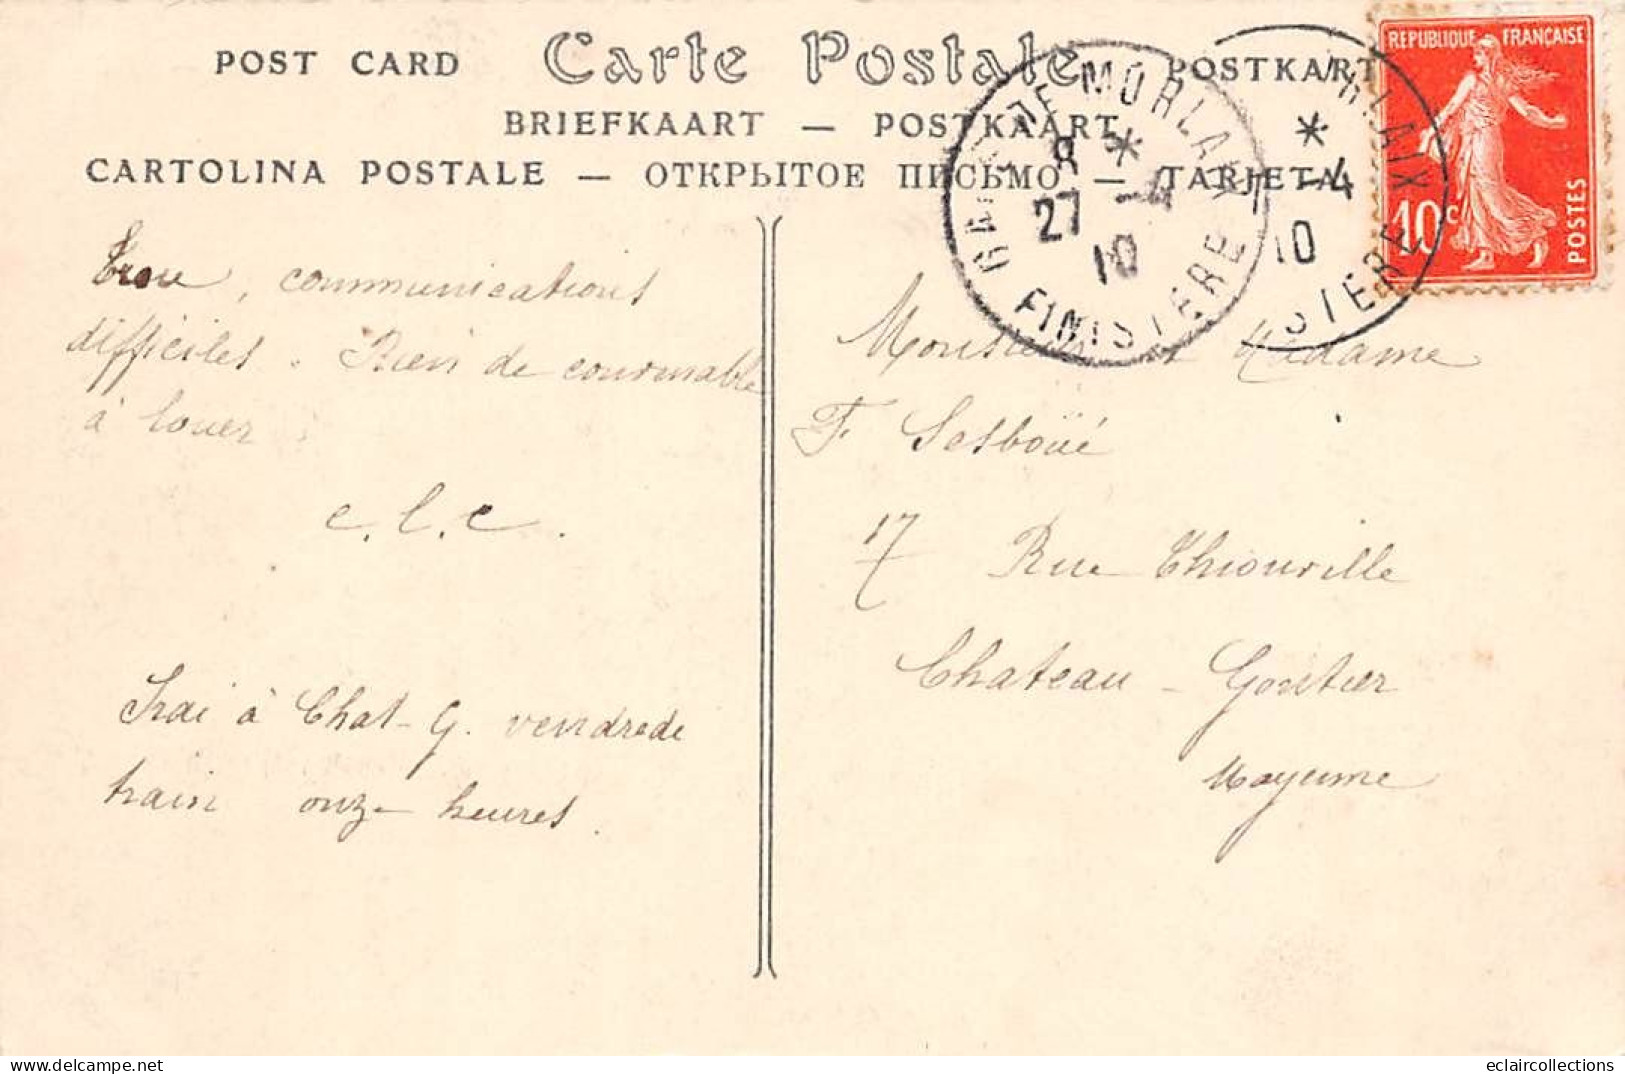 POST CARD Carte Postale POSTKART
BRIEFKAART — POSTKAART
CARTOLINA POSTALE — ОТКРЫТОЕ ПИСЬМО — TARJETA
REPUBLIQUE FRANÇAISE
10c POSTES
GARE DE MORLAIX
8 *
27 -4
10
FINISTERE
RLAIX
*
-4
10
STERE
Trou, communications
difficiles. Rien de convenable
à louer.
c.l.c.
Irai à Chat-G. vendredi
train onze heures.
Monsieur Madame
F. Sesboüé
17 Rue Thiouville
Chateau-Gontier
Mayenne
eclaircollections
www.delcampe.net